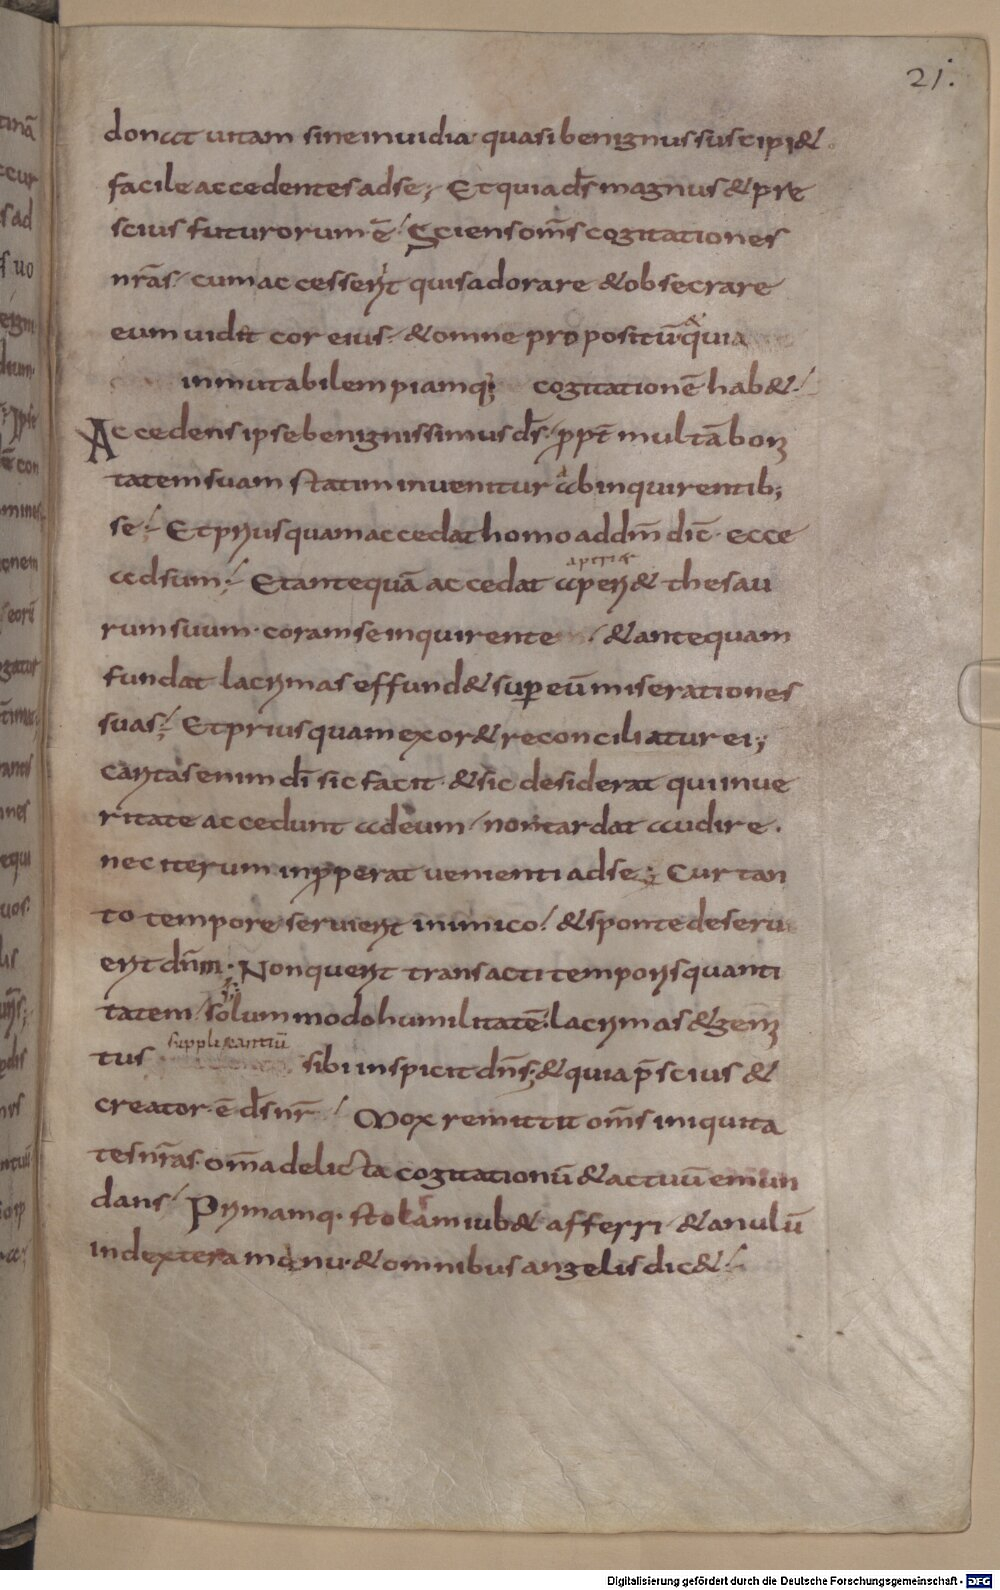 21.
donat uitam sine inuidia quasi benignus suscipi&
facile accedentes ad se; Et quia d̄s magnus & pre
scius futurorum ē Sciens om̄s cogitationes
nr̄as cum accesserit quis adorare & obsecrare
eum uidit cor eius & omne propositū quia
inmutabilem piamq; cogitationē hab&
Accedens ipse benignissimus d̄s propt̄ multā boni
tatem suam statim inuenitur ab inquirentib;
se Et priusquam accedat homo ad dn̄m dic̄ ecce
adsum Et antequā accedat aperi& thesau
aperiat
rum suum coram se inquirente & antequam
fundat lacrimas effund& super eū miserationes
suas Et priusquam exor& reconciliatur ei;
caritas enim dī sic facit & sic desiderat qui in ue
ritate accedunt ad eum non tardat audire
nec iterum inproperat uenienti ad se; Cur tan
to tempore seruierit inimico & sponte deseru
erit dn̄m Non querit transacti temporis quanti
tatem solummodo humilitatē lacrimas & gemi
tus supplicantiū sibi inspicit dn̄s; & quia p̄scius &
creator ē d̄s nr̄ Mox remittit om̄s iniquita
tes nr̄as om̄a delicta cogitationū & actuū emun
dans Primamq. stolam iub& afferri & anulū
in dextera manu & omnibus angelis dic&
Digitalisierung gefördert durch die Deutsche Forschungsgemeinschaft - DFG